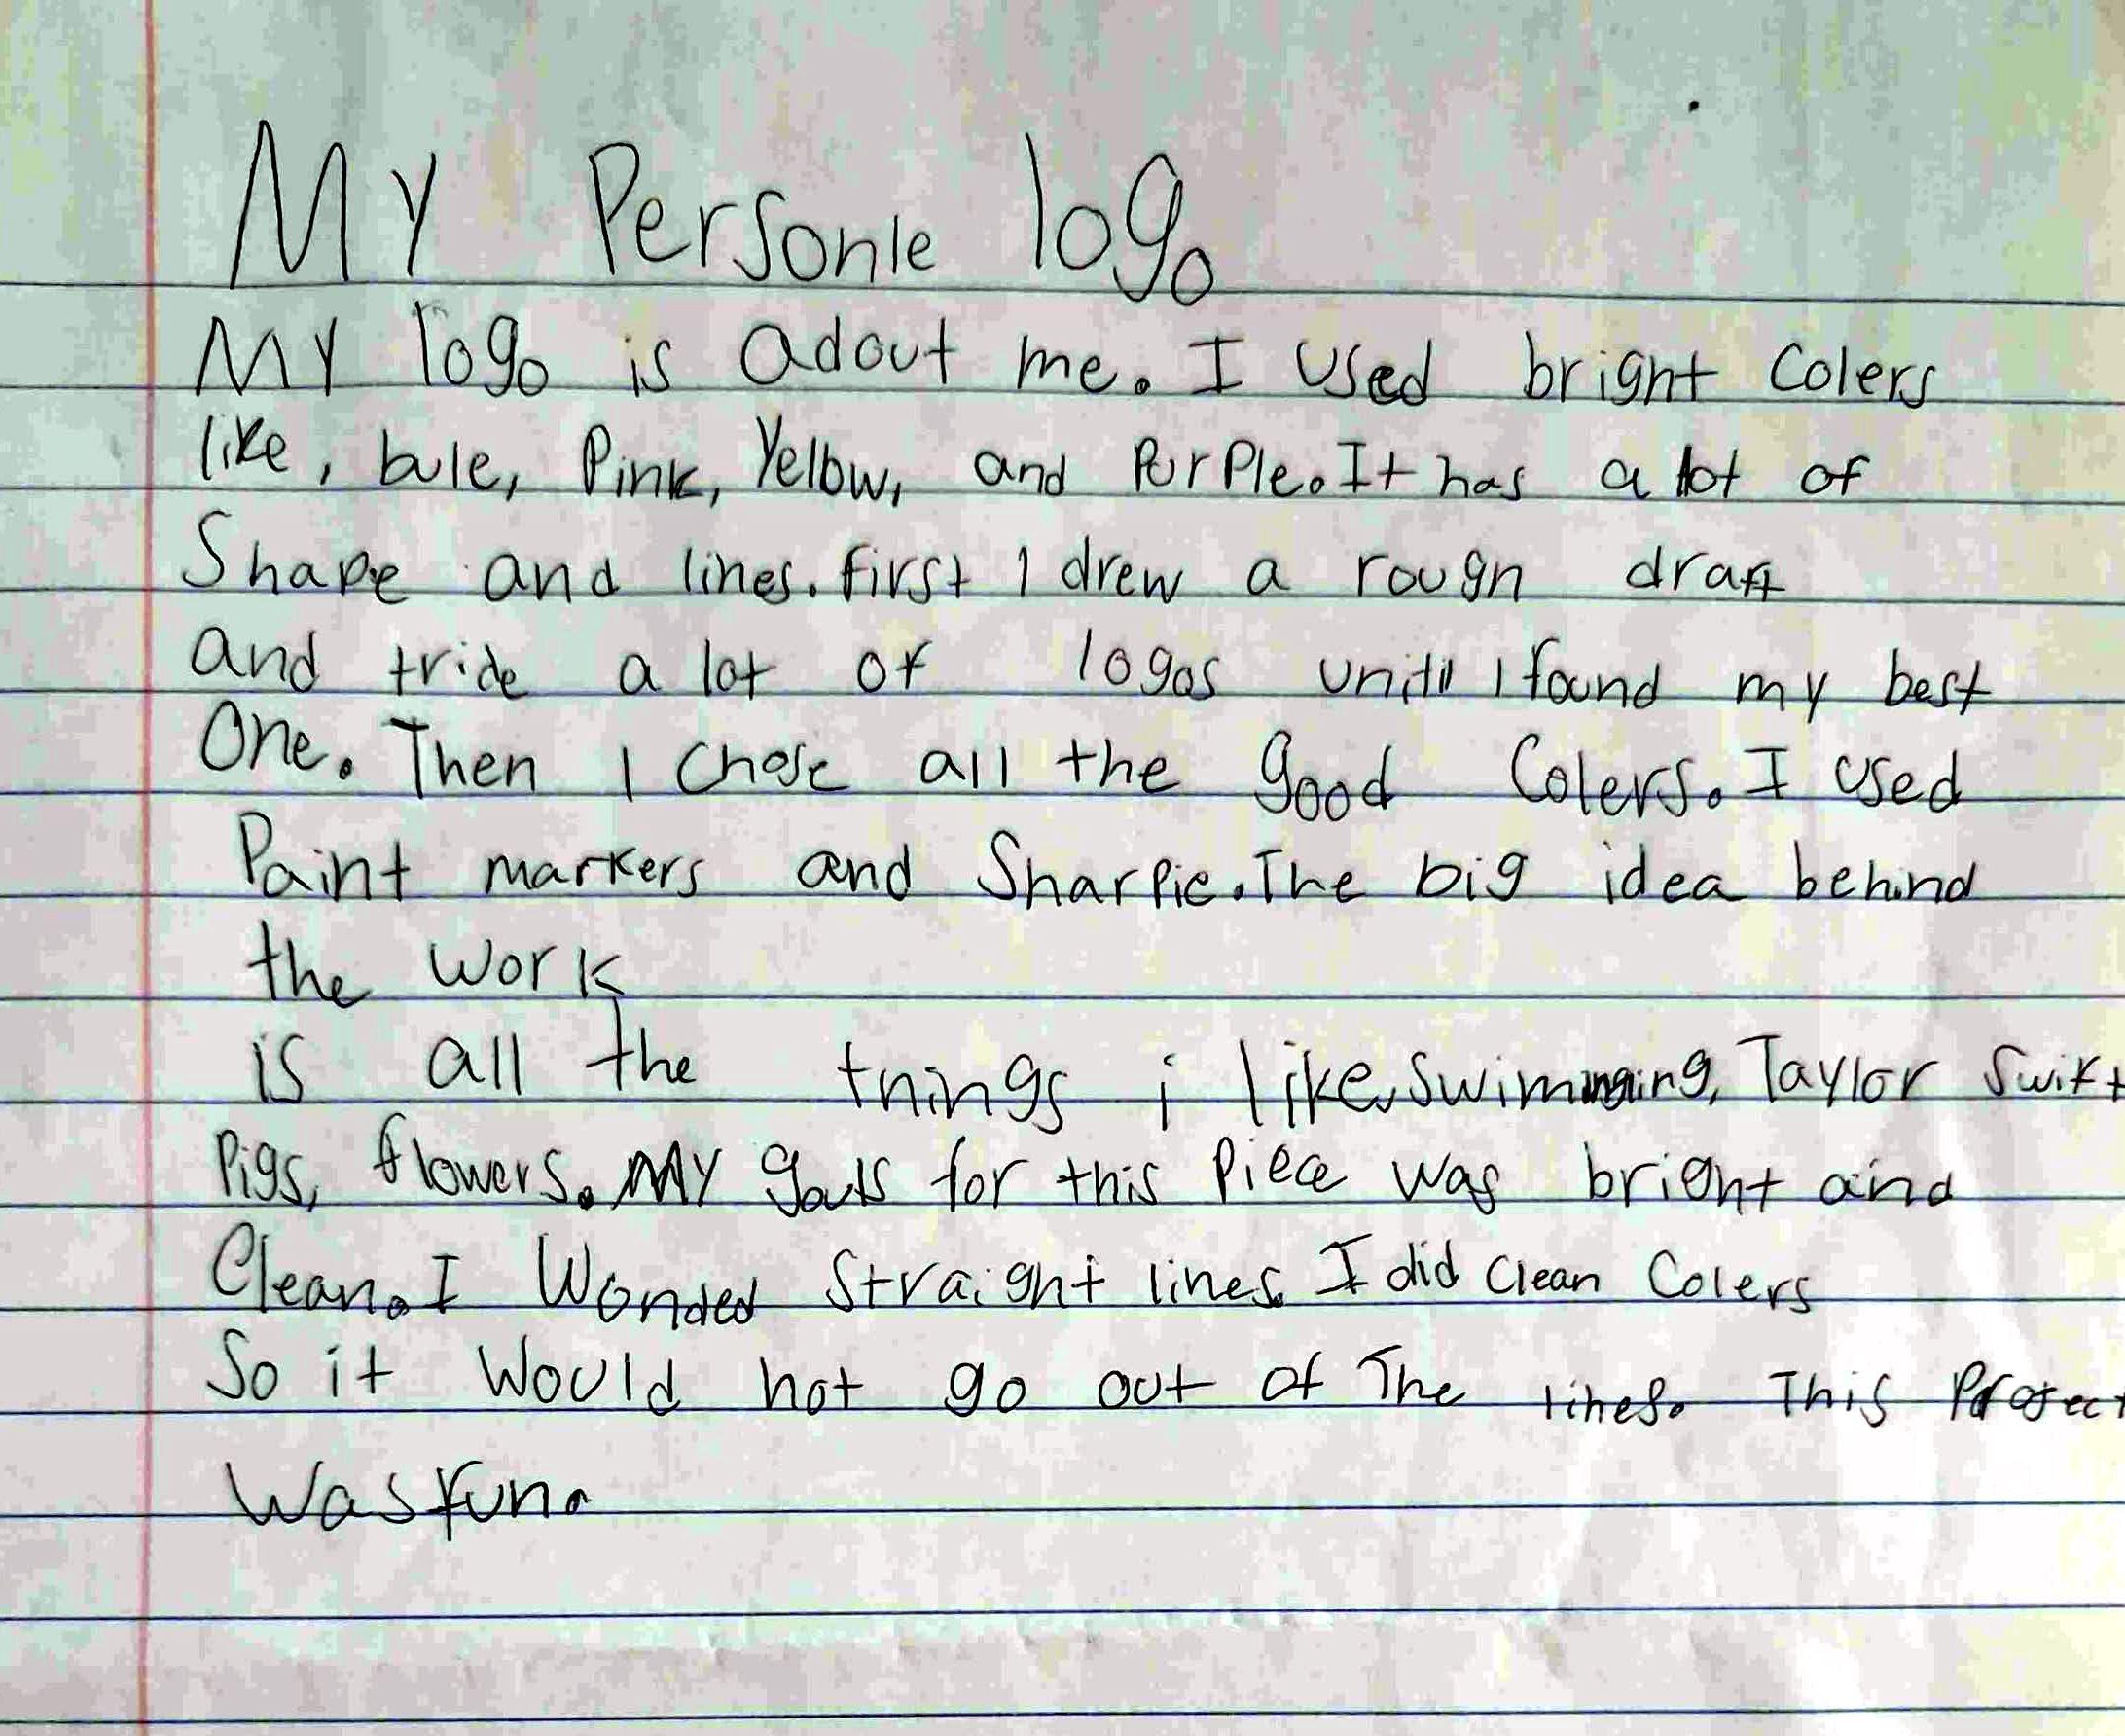 My Personle logo
My logo is adout me. I used bright Colers
like, bule, Pink, Yellow, and Purple. It has a lot of
Shape and lines. first I drew a rough draft
and tride a lot of logos until I found my best
One. Then I chose all the good Colers. I used
Paint markers and Sharpie. The big idea behind
the work
is all the things i like, swimming, Taylor Swift
Pigs, flowers. My gouls for this Piece was bright and
Clean. I Wonded straight lines. I did clean Colers
So it Would not go out of The lines. This Project
Was fun.